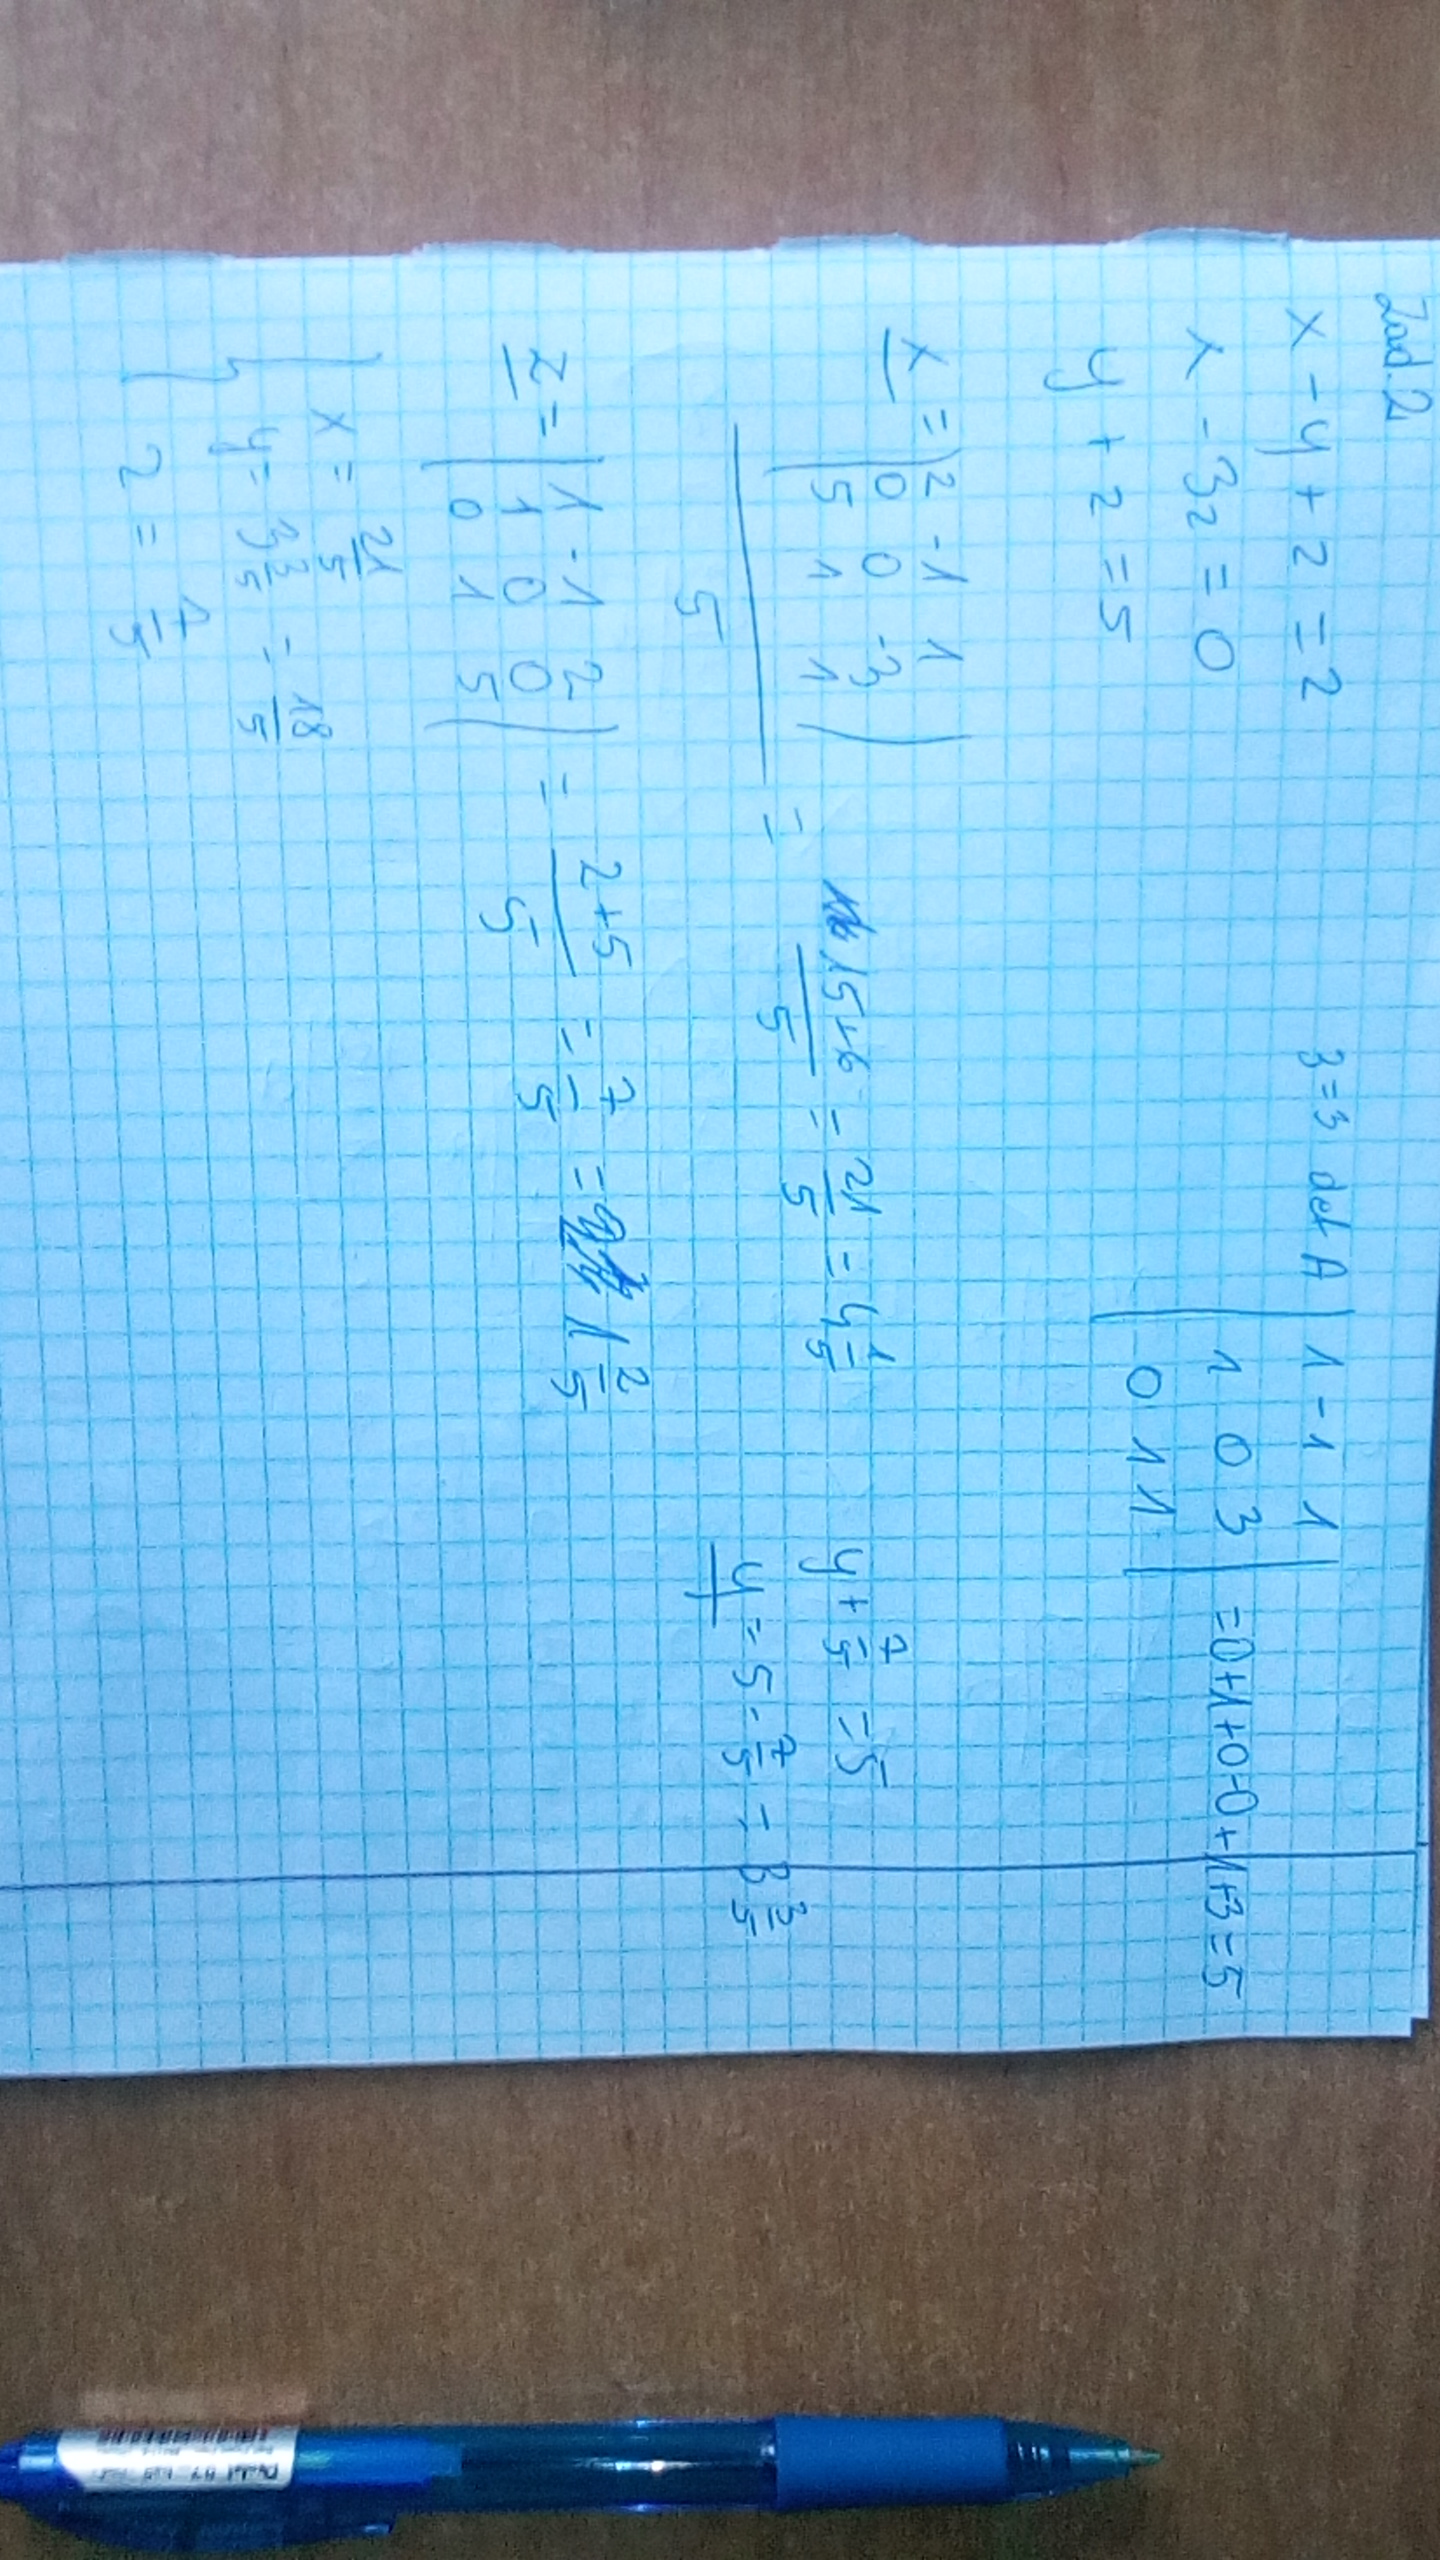 Zad. 2
x - y + z = 2
x - 3z = 0
y + z = 5
3=3 det A | 1 -1 1
1 0 3
0 1 1 | = 0+1+0-0+1+3=5
x = | 2 -1 1
0 0 -3
5 1 1 |
5
= 15+6 / 5 = 21/5 = 4 1/5
y + 7/5 = 5
y = 5 - 7/5 = 3 3/5
z = | 1 -1 2
1 0 0
0 1 5 | = 2+5 / 5 = 7/5 = 1 2/5
x = 21/5
y = 3 3/5 = 18/5
z = 7/5